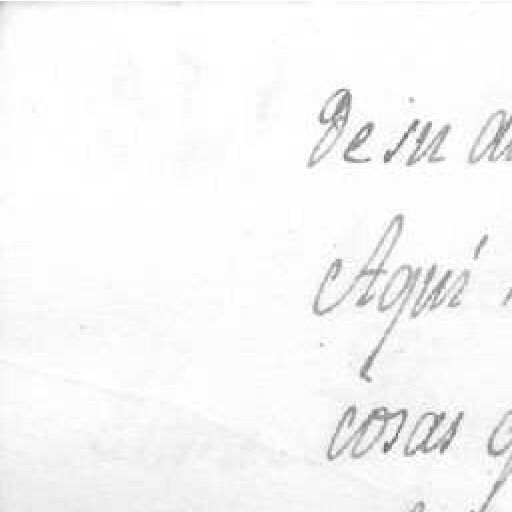 De su
Aquí
cosas